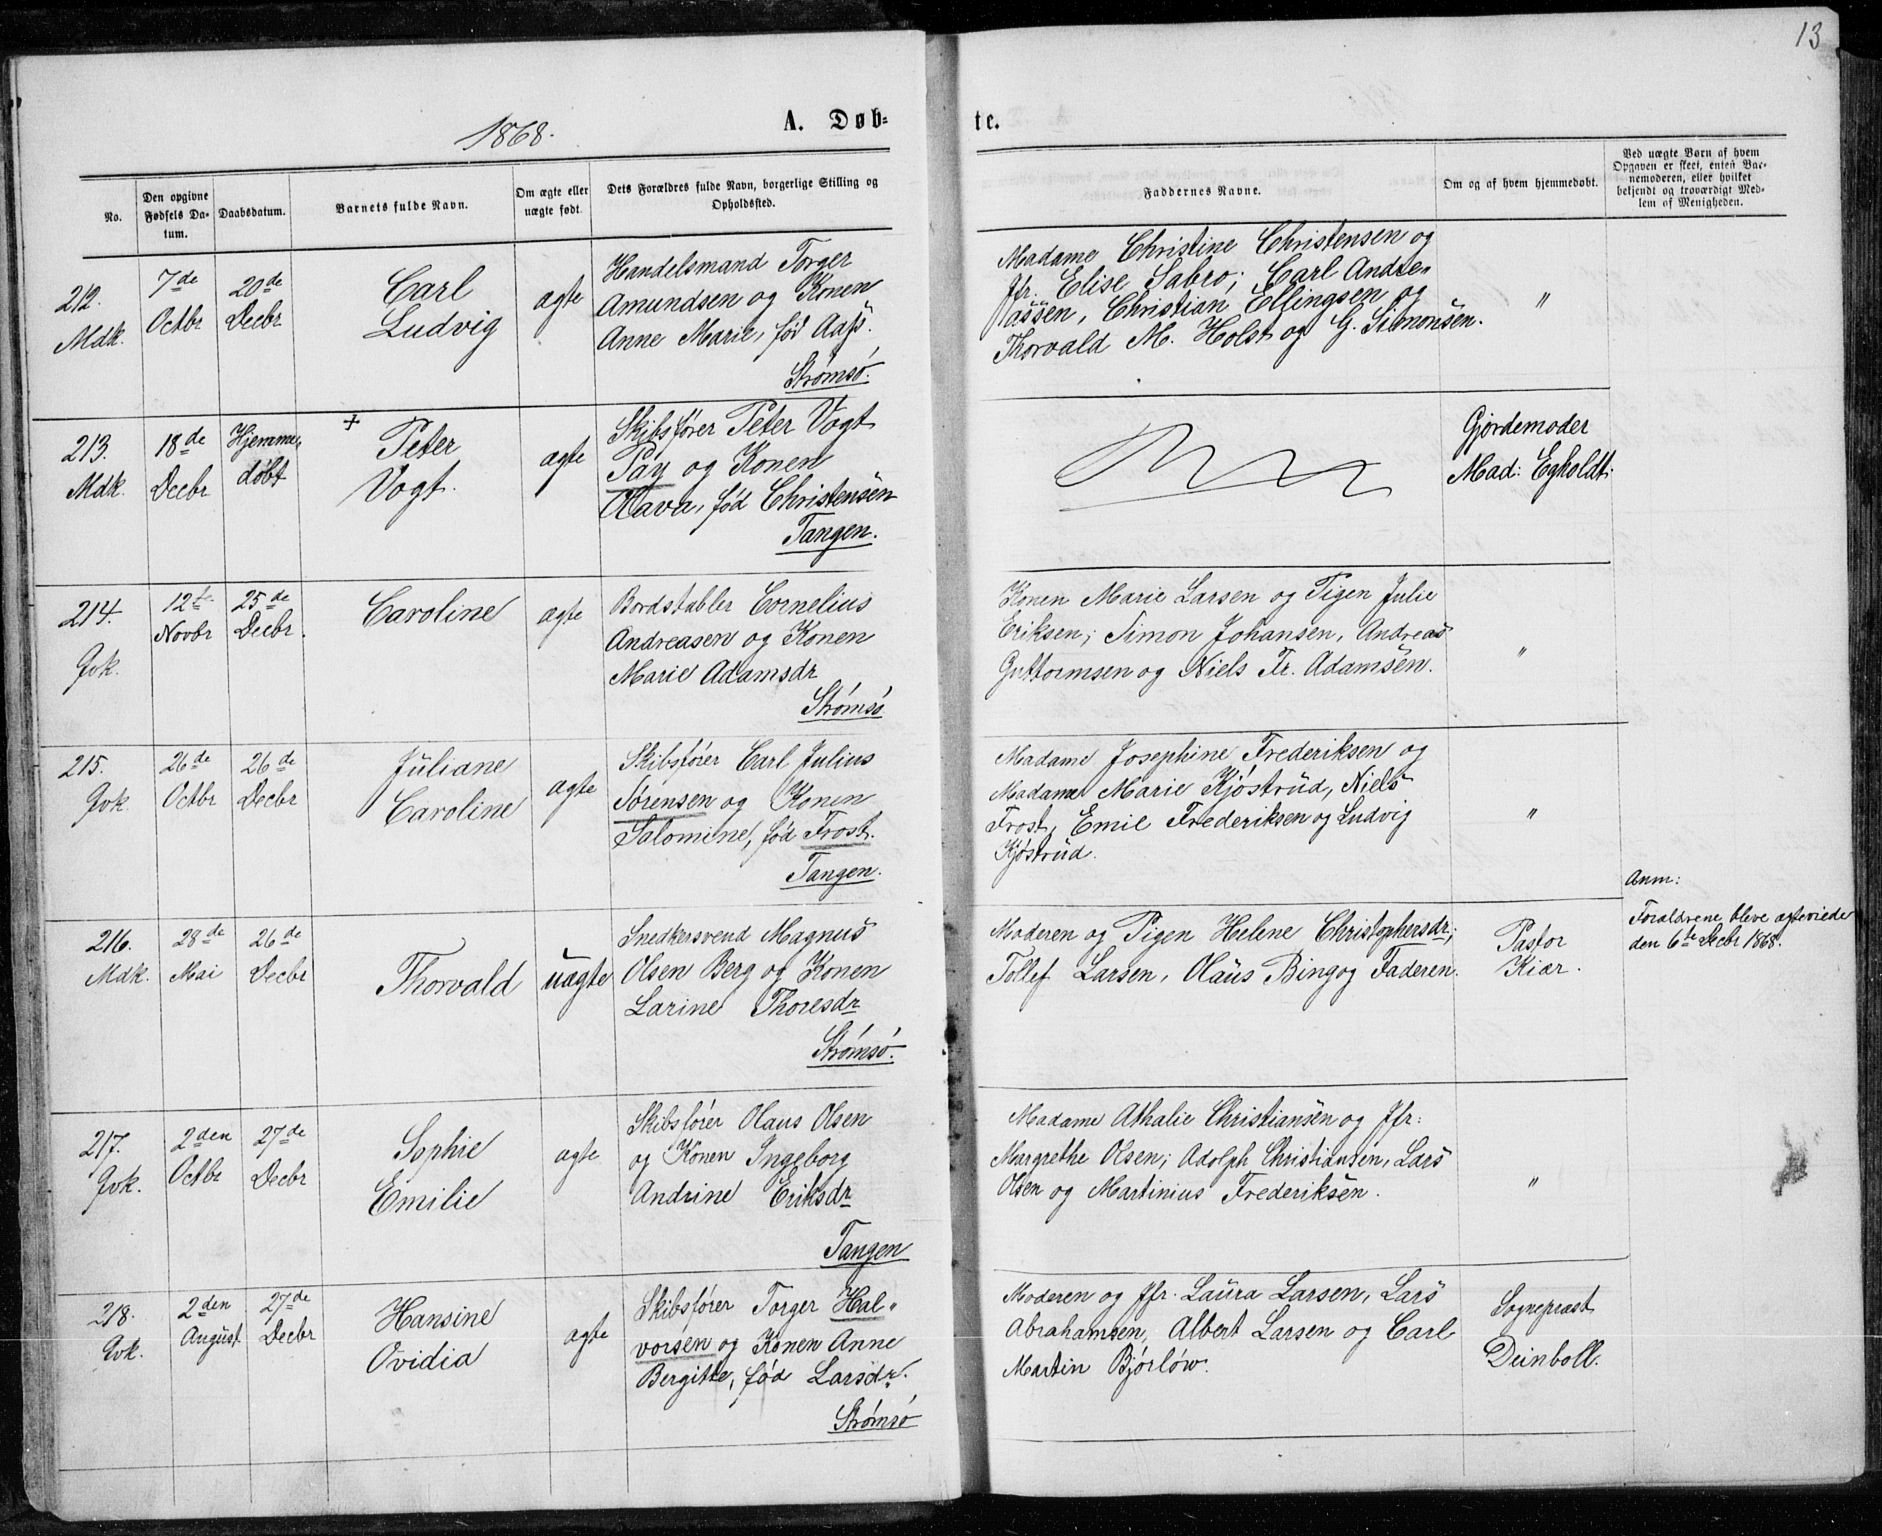 13
1868.
A. Døb-
te.
No.
Den opgivne
Fødsels Da-
tum.
Daabsdatum.
Barnets fulde Navn.
Om ægte eller
uægte født.
Dets Forældres fulde Navn, borgerlige Stilling og
Opholdssted.
Faddernes Navne.
Om og af hvem hjemmedøbt.
Ved uægte Børn af hvem
Opgaven er skeet, enten Bar-
nemoderen, eller hvilket
bekjendt og troværdigt Med-
lem af Menigheden.
212.
Mdk.
7de
Octbr
20de
Decbr
Carl
Ludvig
ægte
Handelsmand Torger
Amundsen og Konen
Anne Marie, fød Aass.
Strømsø.
Madame Christine Christensen og
Jfr. Elise Sabro; Carl Andre-
assen, Christian Ellingsen og
Thorvald M. Holst og G. Simonsen.
"
213.
Mdk.
18de
Decbr
Hjemme-
døbt
+
Peter
Vogt.
ægte
Skibsfører Peter Vogt
Pay og Konen
Olava, fød Christensen
Tangen.
Gjordemoder
Mad: Egholdt.
214.
Qvk.
12te
Novbr
25de
Decbr.
Caroline
ægte
Bordstabler Cornelius
Andreasen og Konen
Marie Adamsdr
Strømsø
Konen Marie Larsen og Pigen Julie
Eriksen; Simon Johansen, Andreas
Guttormsen og Niels Fr. Adamsen.
"
215.
Qvk
26de
Octbr
26de
Decbr
Juliane
Caroline
ægte
Skibsfører Carl Julius
Sørensen og Konen
Salomine, fød Frost.
Tangen.
Madame Josephine Frederiksen og
Madame Marie Kjøstrud, Niels
Frost, Emil Frederiksen og Ludvig
Kjøstrud.
"
216.
Mdk.
28de
Mai
26de
Decbr
Thorvald
uægte
Snedkersvend Magnus
Olsen Berg og Konen
Larine Thoresdr
Strømsø.
Moderen og Pigen Helene Christophersdr;
Tollef Larsen, Olaus Bing og Faderen.
Pastor
Kiær.
Anm:
Forældrene bleve ægteviede
den 6te Decbr 1868.
217.
Qvk.
2den
Octbr
27de
Decbr
Sophie
Emilie
ægte
Skibsfører Olaus Olsen
og Konen Ingeborg
Andrine Eriksdr
Tangen
Madame Athalie Christiansen og Jfr:
Margrethe Olsen; Adolph Christiansen, Lars
Olsen og Martinius Frederiksen.
"
218.
Qvk.
2den
August
27de
Decbr
Hansine
Ovidia
ægte
Skibsfører Torger Hal-
vorsen og Konen Anne
Bergitte, fød Larsdr.
Strømsø
Moderen og Jfr. Laura Larsen, Lars
Abrahamsen, Albert Larsen og Carl
Martin Bjørløw.
Sognepræst
Deinboll.